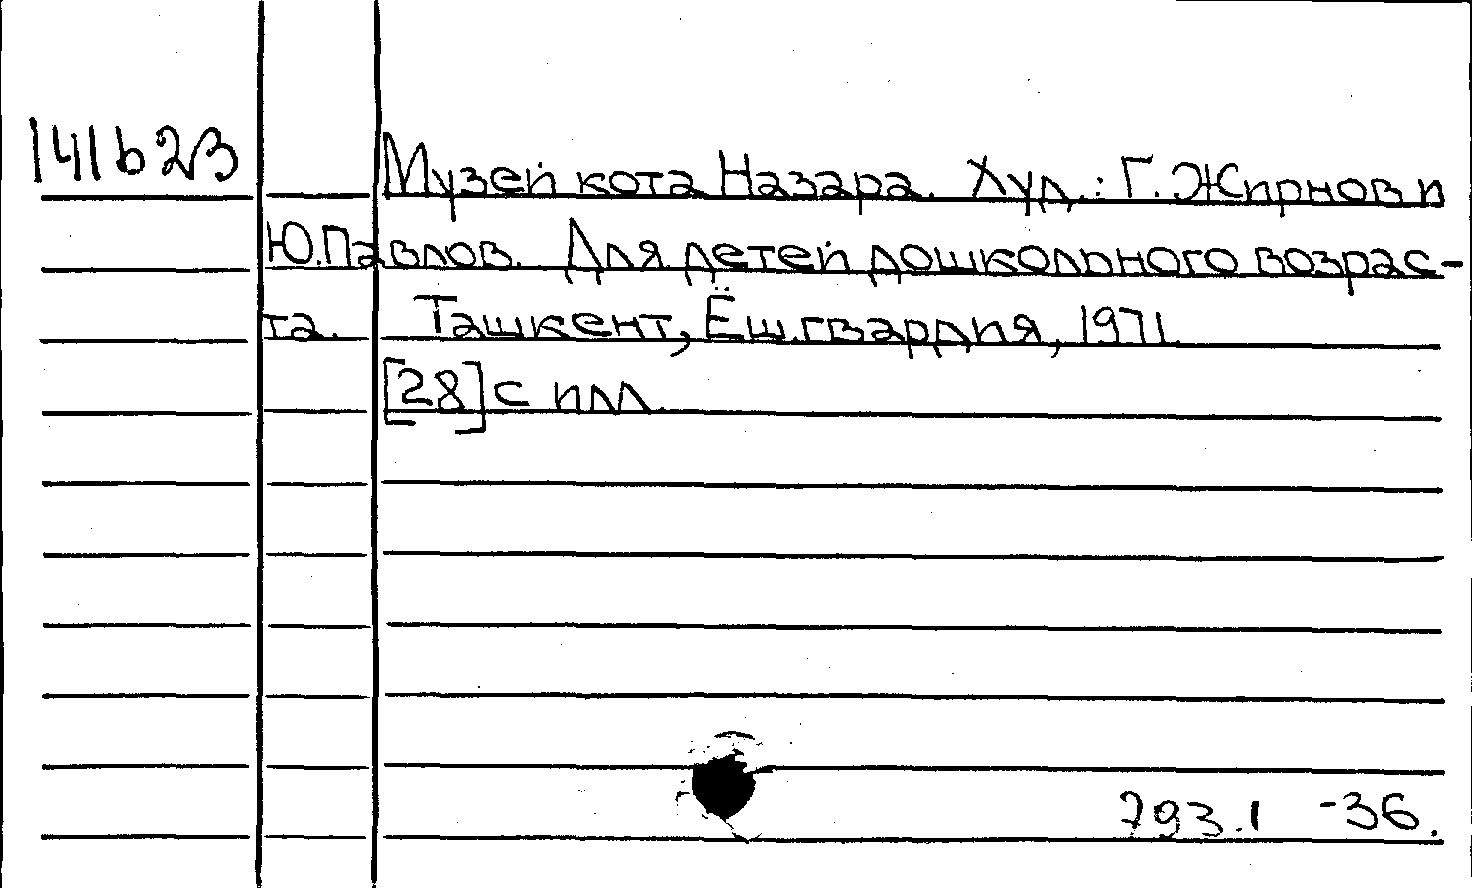 141623 Музей кота Назара. Худ.: Г. Жирнов и
Ю. Павлов. Для детей дошкольного возрас-
та. Ташкент, Ёш гвардия, 1971.
[28] с илл.
793.1 -36.